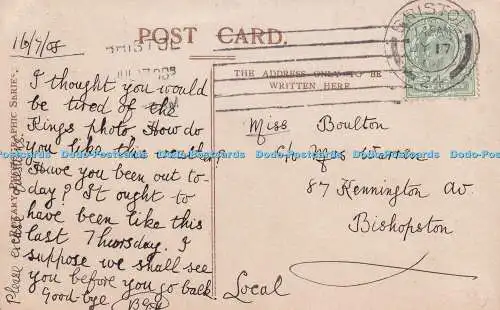 16/7/08
POST CARD.
BRISTOL
JUL 17 08
BRISTOL
17
THE ADDRESS ONLY TO BE
WRITTEN HERE
I thought you would
be tired of the
Kings photo. How do
you like this weather?
Have you been out to-
day? It ought to
have been like this
last Thursday. I
suppose we shall see
you before you go back
Good-bye
Please excuse
Miss Boulton
c/o Mrs Warren
87 Kennington Av.
Bishopston
Local
PHOTOGRAPHIC SERIES.
Dodo-Postcards Dodo-Postcards Dodo-Postcards Dodo-Postcards Dodo-Postcards